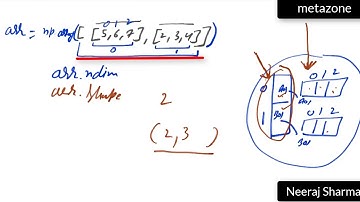 metazone
0 1 2
arr = np array([ [5,6,7], [2,3,4] ])
0 1
arr. ndim
arr. shape
2
(2,3 )
0 1 2
0
1
0 1 2
Neeraj Sharma